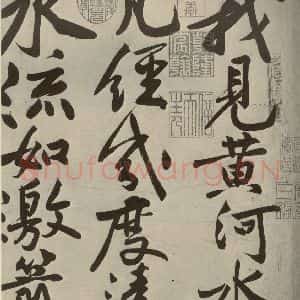 我見黄河水
凡經幾度清
水流如激箭
Shufawang.CN